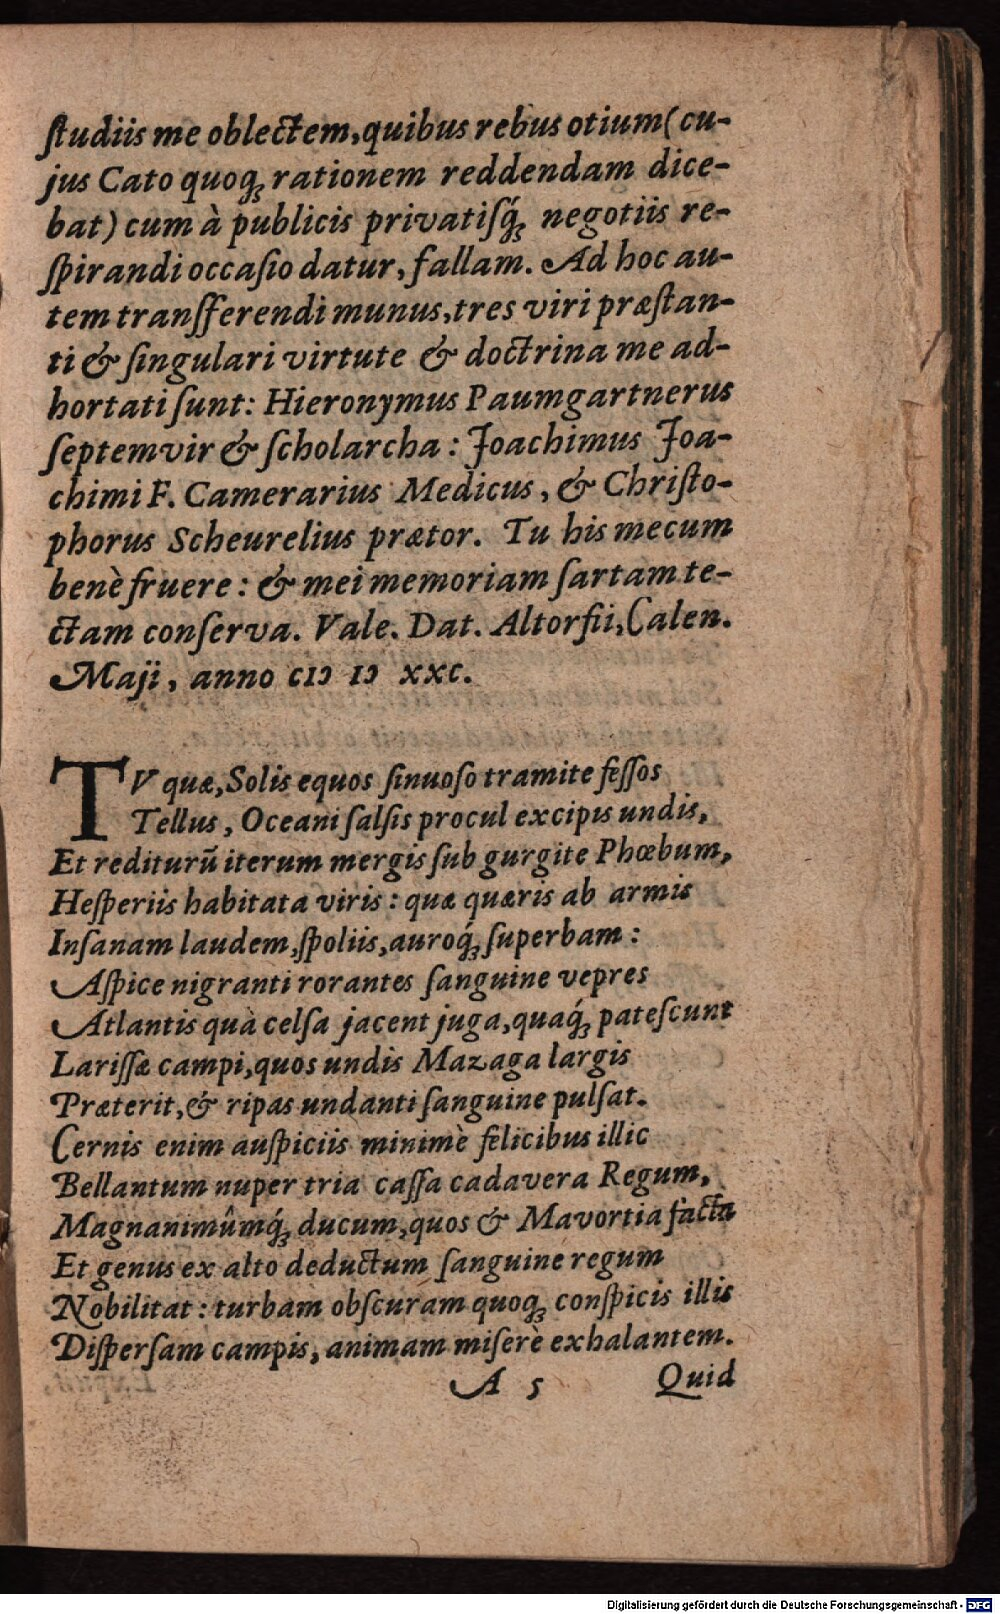 ſtudiis me oblectem, quibus rebus otium (cu-
jus Cato quoq́ꝫ rationem reddendam dice-
bat) cum à publicis privatiſq́ꝫ negotiis re-
ſpirandi occaſio datur, fallam. Ad hoc au-
tem tranſferendi munus, tres viri præſtan-
ti & ſingulari virtute & doctrina me ad-
hortati ſunt: Hieronymus Paumgartnerus
ſeptemvir & ſcholarcha: Joachimus Joa-
chimi F. Camerarius Medicus, & Chriſto-
phorus Scheurelius prætor. Tu his mecum
benè fruere: & mei memoriam ſartam te-
ctam conſerva. Vale. Dat. Altorfii, Calen.
Maji, anno cIↄ Iↄ xxc.
TV quæ, Solis equos ſinuoſo tramite feſſos
Tellus, Oceani ſalſis procul excipis undis,
Et rediturū iterum mergis ſub gurgite Phœbum,
Heſperiis habitata viris: quæ quæris ab armis
Inſanam laudem, ſpoliis, auroq́ꝫ ſuperbam:
Aſpice nigranti rorantes ſanguine vepres
Atlantis quà celſa jacent juga, quaq́ꝫ pateſcunt
Lariſſæ campi, quos undis Mazaga largis
Præterit, & ripas undanti ſanguine pulſat.
Cernis enim auſpiciis minimè felicibus illic
Bellantum nuper tria caſſa cadavera Regum,
Magnanimûmq́ꝫ ducum, quos & Mavortia facta
Et genus ex alto deductum ſanguine regum
Nobilitat: turbam obſcuram quoqꝫ conſpicis illis
Diſperſam campis, animam miſerè exhalantem.
A 5 Quid
Digitalisierung gefördert durch die Deutsche Forschungsgemeinschaft - DFG